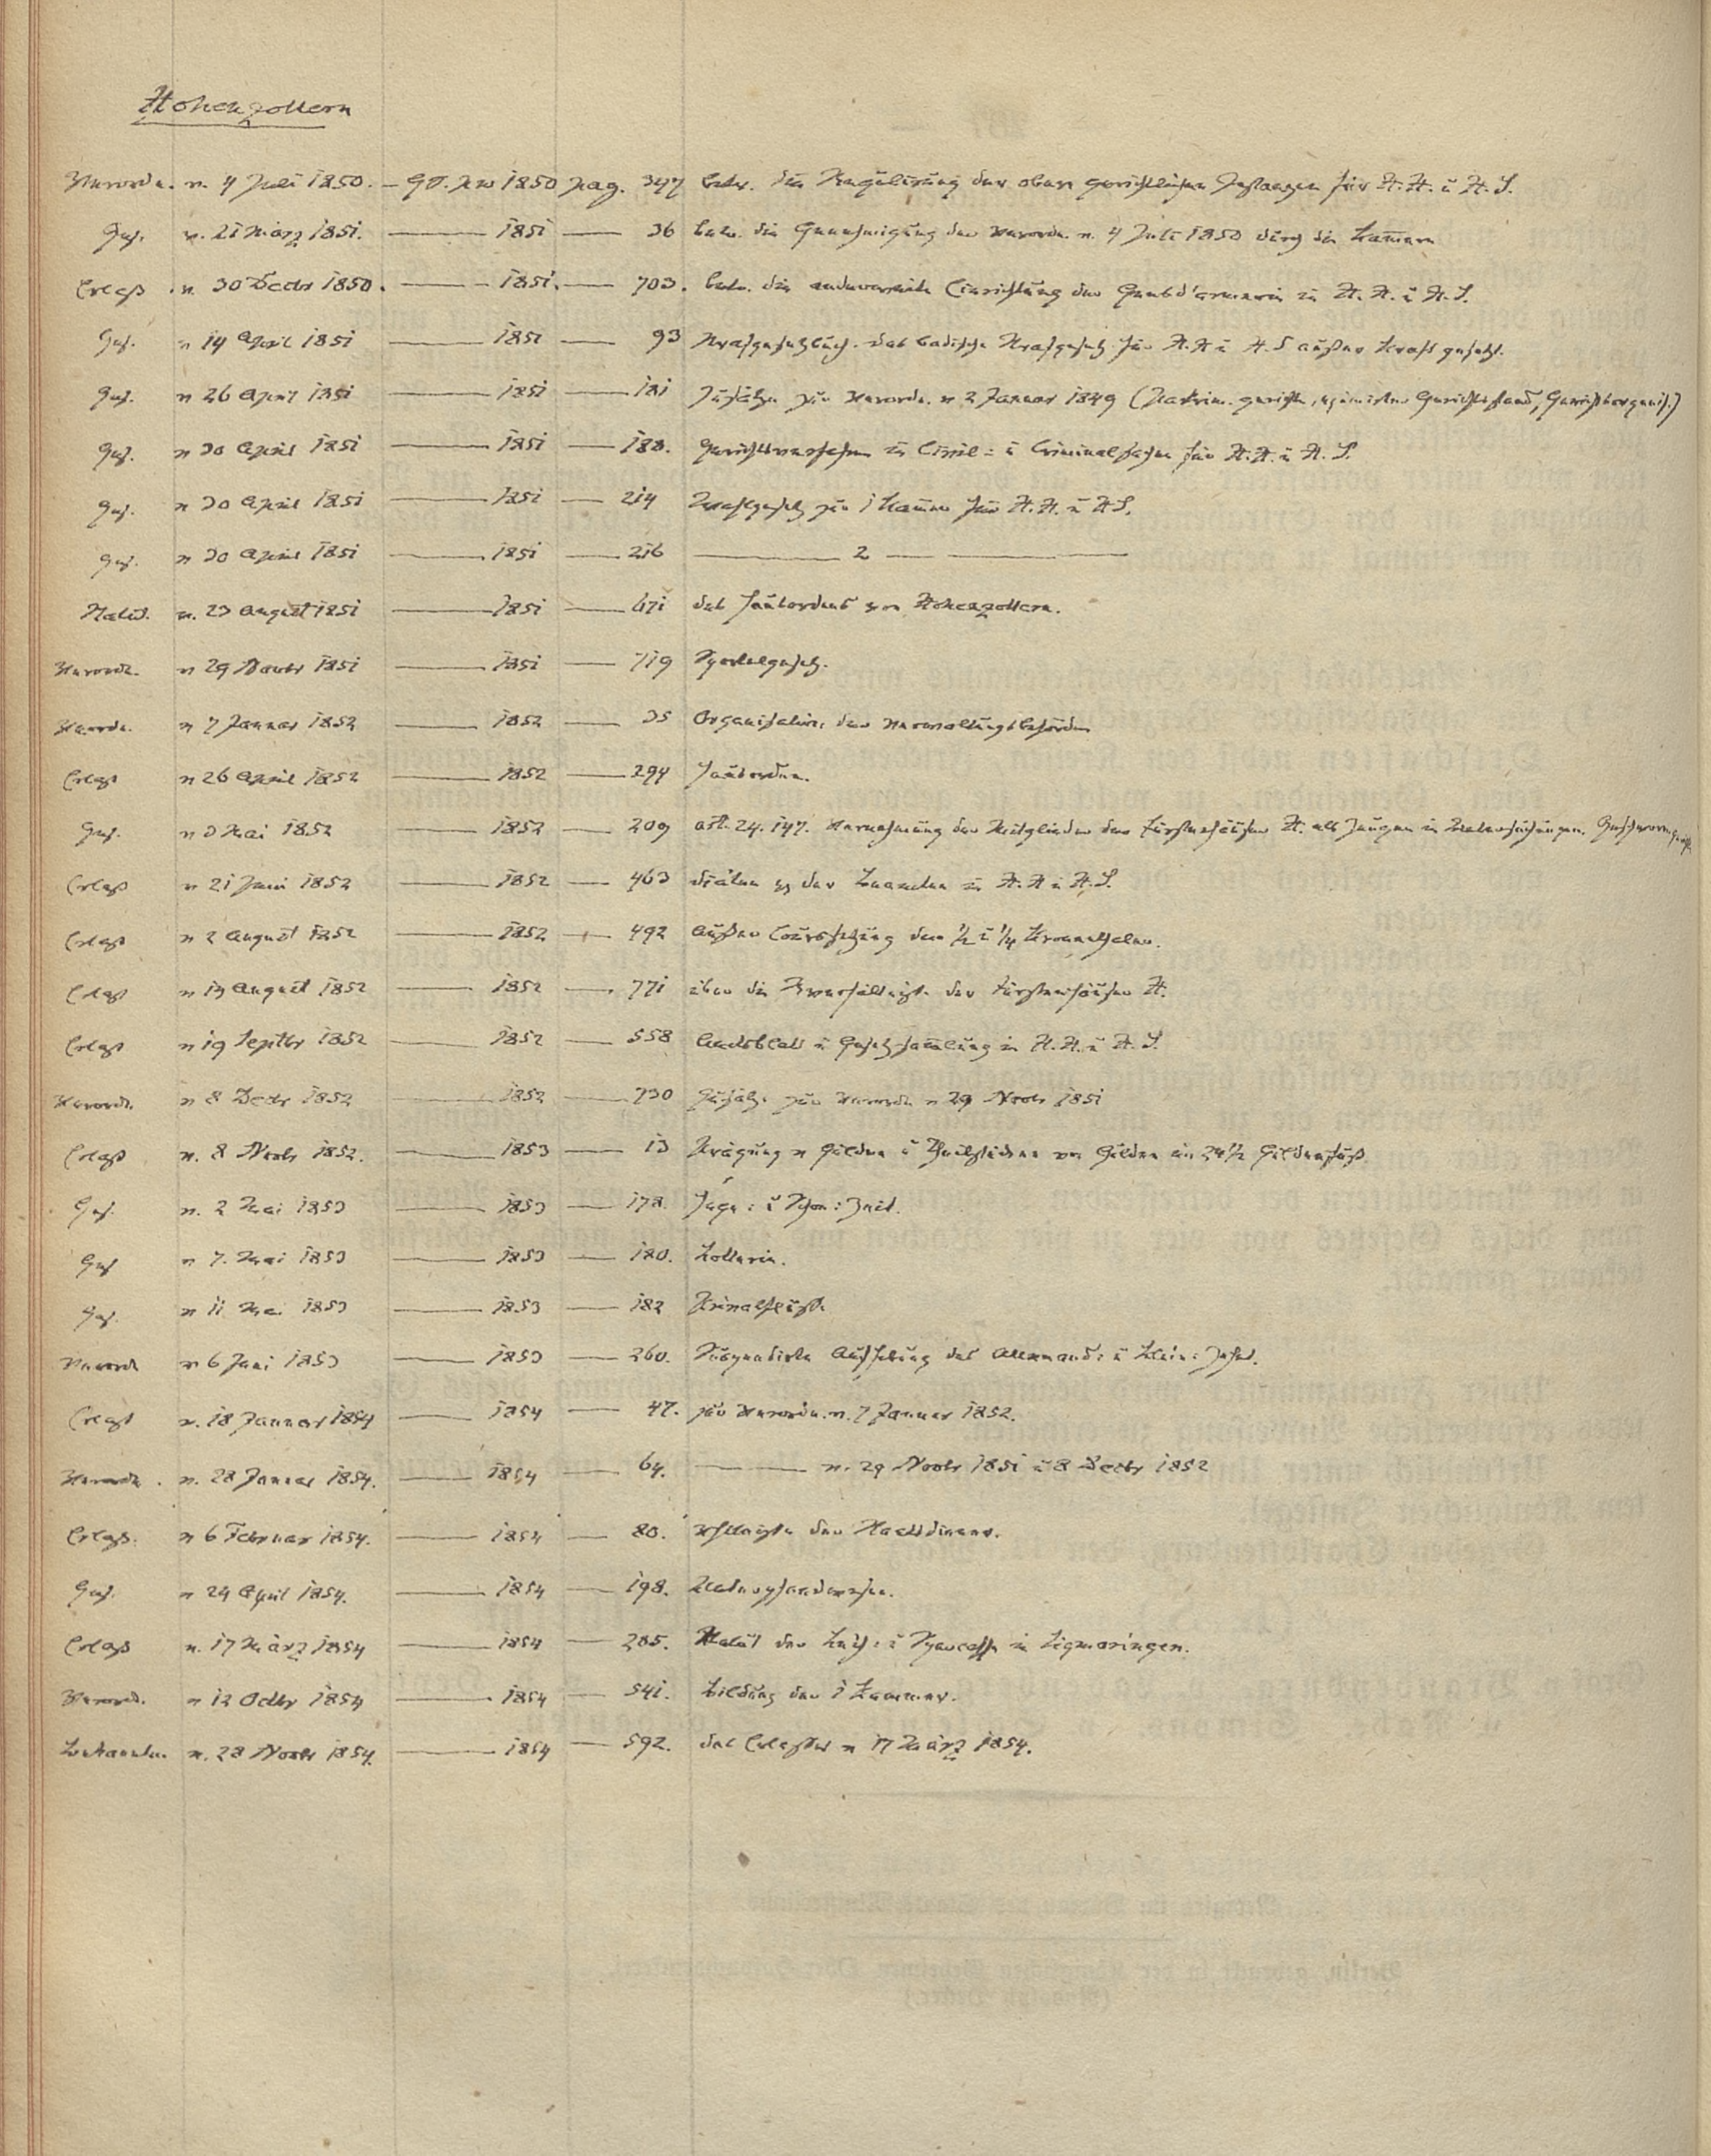 Hohenzollern
Verordn. v. 4 Juli 1850. — GS. pro 1850 pag. 347 betr. die Regulirung der obern gerichtlichen Instanzen für H. H. u H. S.
Ges. v. 21 März 1851. — 1851 — 36 betr. die Genehmigung der Verordn. v. 4 Juli 1850 durch die Kammern
Erlaß v. 30 Decbr 1850. — 1851. — 703. betr. die anderweite Einrichtung der Gensd'armerie in H. H. u H. S.
Ges. v 14 April 1851 — 1851 — 93 Strafgesetzbuch. das badische Strafgesetz für H. H u H. S außer Kraft gesetzt.
Ges. v 26 April 1851 — 1851 — 181 Zusätze zur Verordn. v 2 Januar 1849 (Patrim. gericht, eximirter Gerichtsstand, Gerichtsorganis.)
Ges. v 30 April 1851 — 1851 — 188. Gerichtsverfahren in Civil- u Criminalsachen für H. H. u H. S.
Ges. v 30 April 1851 — 1851 — 214 Wahlgesetz zur 1 Kammer für H. H. u H S.
Ges. v 30 April 1851 — 1851 — 216 — 2 —
Statut. v. 23 August 1851 — 1851 — 671 des Hausordens von Hohenzollern.
Verordn. v 29 Novbr 1851 — 1851 — 719 Sportelgesetz.
Verordn. v 7 Januar 1852 — 1852 — 35 Organisation der Verwaltungsbehörden
Erlaß v 26 April 1852 — 1852 — 294 Hausorden.
Ges. v 3 Mai 1852 — 1852 — 209 Art. 24. 147. Vernehmung der Mitglieder der Fürstenhäuser H. als Zeugen in Untersuchungen. Geschworengericht
Erlaß v 21 Juni 1852 — 1852 — 463 Diäten der Beamten in H. H u H. S.
Erlaß v 2 August 1852 — 1852 — 492 Außer Courssetzung der ½ u ¼ Kronenthaler.
Erlaß v 13 August 1852 — 1852 — 771 über die Verhältnisse der Fürstenhäuser H.
Erlaß v 19 Septbr 1852 — 1852 — 558 Amtsblatt u Gesetz-Sammlung in H. H. u H. S.
Verordn. v 8 Decbr 1852 — 1852 — 730 Zusätze zur Verordn v 29 Novbr 1851
Erlaß v. 8 Novbr 1852. — 1853 — 13 Prägung v Gulden u Theilstücken von Gulden im 24½ Guldenfuß
Ges. v. 2 Mai 1853 — 1853 — 178. Hege- u Schon-Zeit.
Ges v 7. Mai 1853 — 1853 — 180. Lotterie.
Ges. v 11 Mai 1853 — 1853 — 182 Privatflüsse
Verord v 6 Juni 1853 — 1853 — 260. Suspendirte Aufhebung des Allemand- u Klein-Zehnt.
Erlaß v. 18 Januar 1854 — 1854 — 47. zur Verordn. v. 7 Januar 1852.
Verordn. v. 28 Januar 1854. — 1854 — 64. — v. 29 Novbr 1851 u 8 Decbr 1852
Erlaß. v 6 Februar 1854. — 1854 — 80. der Staatsdiener.
Ges. v 24 April 1854. — 1854 — 198. Unterpfandwesen.
Erlaß v. 17 März 1854 — 1854 — 285. Statut der Leih- u Sparcasse in Sigmaringen.
Verord. v 12 Octbr 1854 — 1854 — 541. Bildung der 1 Kammer.
Bekanntm. v. 28 Novbr 1854. — 1854 — 592. des Erlasses v 17 März 1854.